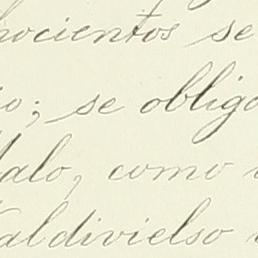 hocientos se
io; se obliga
Malo, como
Valdivielso